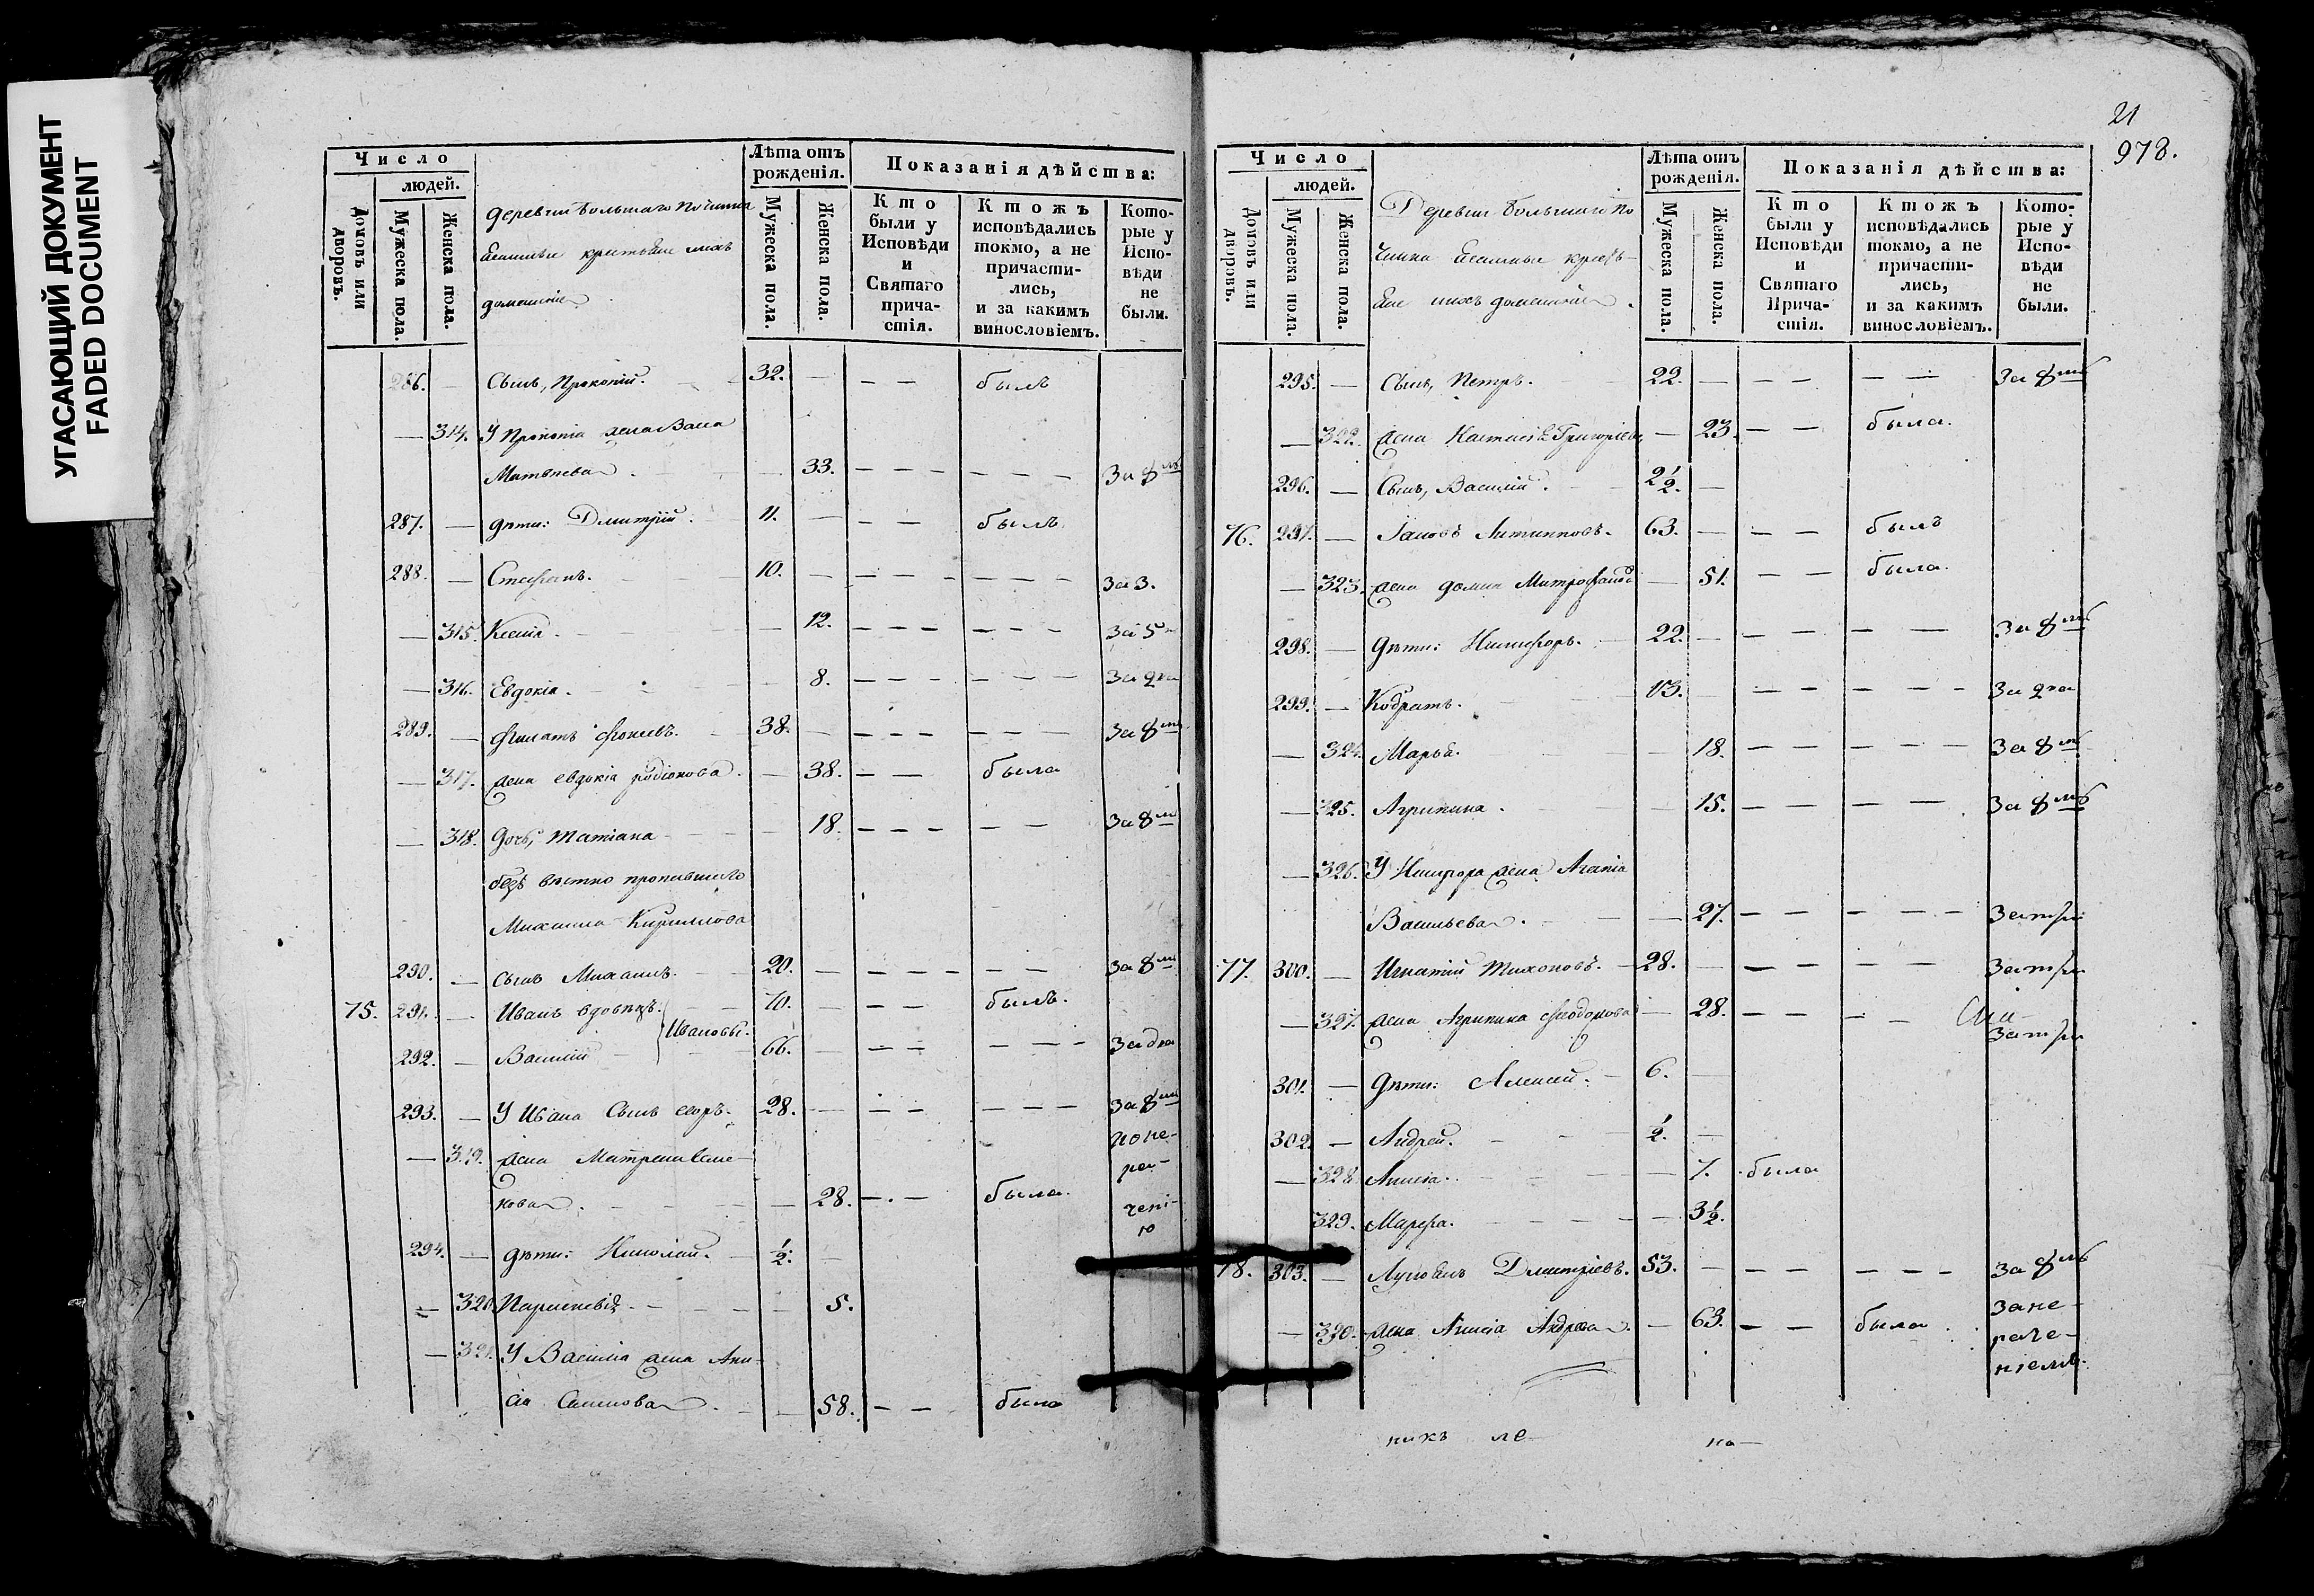 УГАСАЮЩИЙ ДОКУМЕНТ
FADED DOCUMENT
Число
людей.
Домовъ или дворовъ.
Мужеска пола.
Женска пола.
деревни большаго починка
домашніе
Лѣта отъ рожденія.
Мужеска пола.
Женска пола.
Показанія дѣйства:
Кто были у Исповѣди и Святаго причастія.
Ктожъ исповѣдались токмо, а не причастились, и за какимъ винословіемъ.
Которые у Исповѣди не были.
286. — Сынъ, Прокопій. 32. — — — былъ
— 314. У Прокопія жена
Матвѣева. — 33. — — — — — — За 8мь
287. — дѣти: Дмитрій. 11. — — — былъ
288. — Стефанъ. 10. — — — — — — — За 3.
— 315. Ксенія. — 12. — — — — — — За 5
— 316. Евдокія. — 8. — — — — — — За два
289. — Филатъ Фокеевъ. 38. — — — — — — — За 8мь
— 317. жена Евдокія Родіонова. — 38. — — была
— 318. дочь, Татіана — 18. — — — — — За 8мь
безъ вѣстно пропавшаго
Михаила Кириллова
290. — сынъ Михаилъ. 20. — — — — — — За 8мь
75. 291. — Иванъ вдовецъ. 70. — — — былъ.
Ивановы.
292. — Василій 66. — — — — — — За два
293. — У Ивана Сынъ Егоръ. 28. — — — — — — За 8мь
— 319. жена Матрена Семе-
нова. — 28. — — была.
по не-
ра-
чені-
ю
294. — дѣти: Николай. 1/2. —
— 320. Параскевія — 5.
— 321. У Василія жена Ани-
сія Семенова. — 58. — — была
21
978.
Число
людей.
Домовъ или дворовъ.
Мужеска пола.
Женска пола.
Деревни большаго по
чинка
домашніе.
Лѣта отъ рожденія.
Мужеска пола.
Женска пола.
Показанія дѣйства:
Кто были у Исповѣди и Святаго Причастія.
Ктожъ исповѣдались токмо, а не причастились, и за какимъ винословіемъ.
Которые у Исповѣди не были.
295. — Сынъ, Петръ. 22. — — — — — За 8мь
— 322. жена Настасья Григорьева — 23. — — была.
296. — Сынъ, Василій. 2 1/2. —
76. 297. — Іаковъ Антиповъ. 63. — — — былъ
— 323. жена Домна Митрофанова — 51. — — была.
298. — дѣти: Никифоръ. 22. — — — — — За 8мь
299. — Кодратъ. 13. — — — — — — За два
— 324. Марья. — 18. — — — — — За 8мь
— 325. Агрипина. — 15. — — — — — За 8мь
— 326. У Никифора жена Агапія
Васильева. — 27. — — — — — За три
77. 300. — Игнатій Тихоновъ. 28. — — — — — — За три
— 327. жена Агрипина Феодорова — 28. — — — — За три
301. — Дѣти: Алексей. 6. —
302. — Андрей. 1/2. —
— 328. Анисія. — 7. была
329. Марфа. — 3 1/2.
78. 303. — Лукоянъ Дмитріевъ. 53. — — — — — — За 8мь
— 330. жена Анисія Андреева. — 63. — — была.
за не-
раче-
ніемъ.
никъ ле— на—